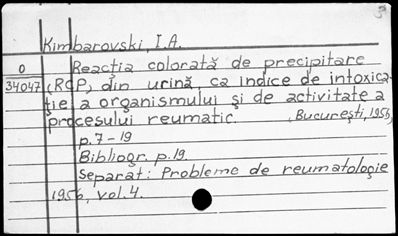 Kimbarovski, I.A.
0 Reacția colorată de precipitare
34047 (RCP) din urină, ca indice de intoxica-
ție a organismului și de activitate a
procesului reumatic. București, 1956,
p. 7-19
Bibliogr. p. 19.
Separat: Probleme de reumatologie
1956, vol. 4.